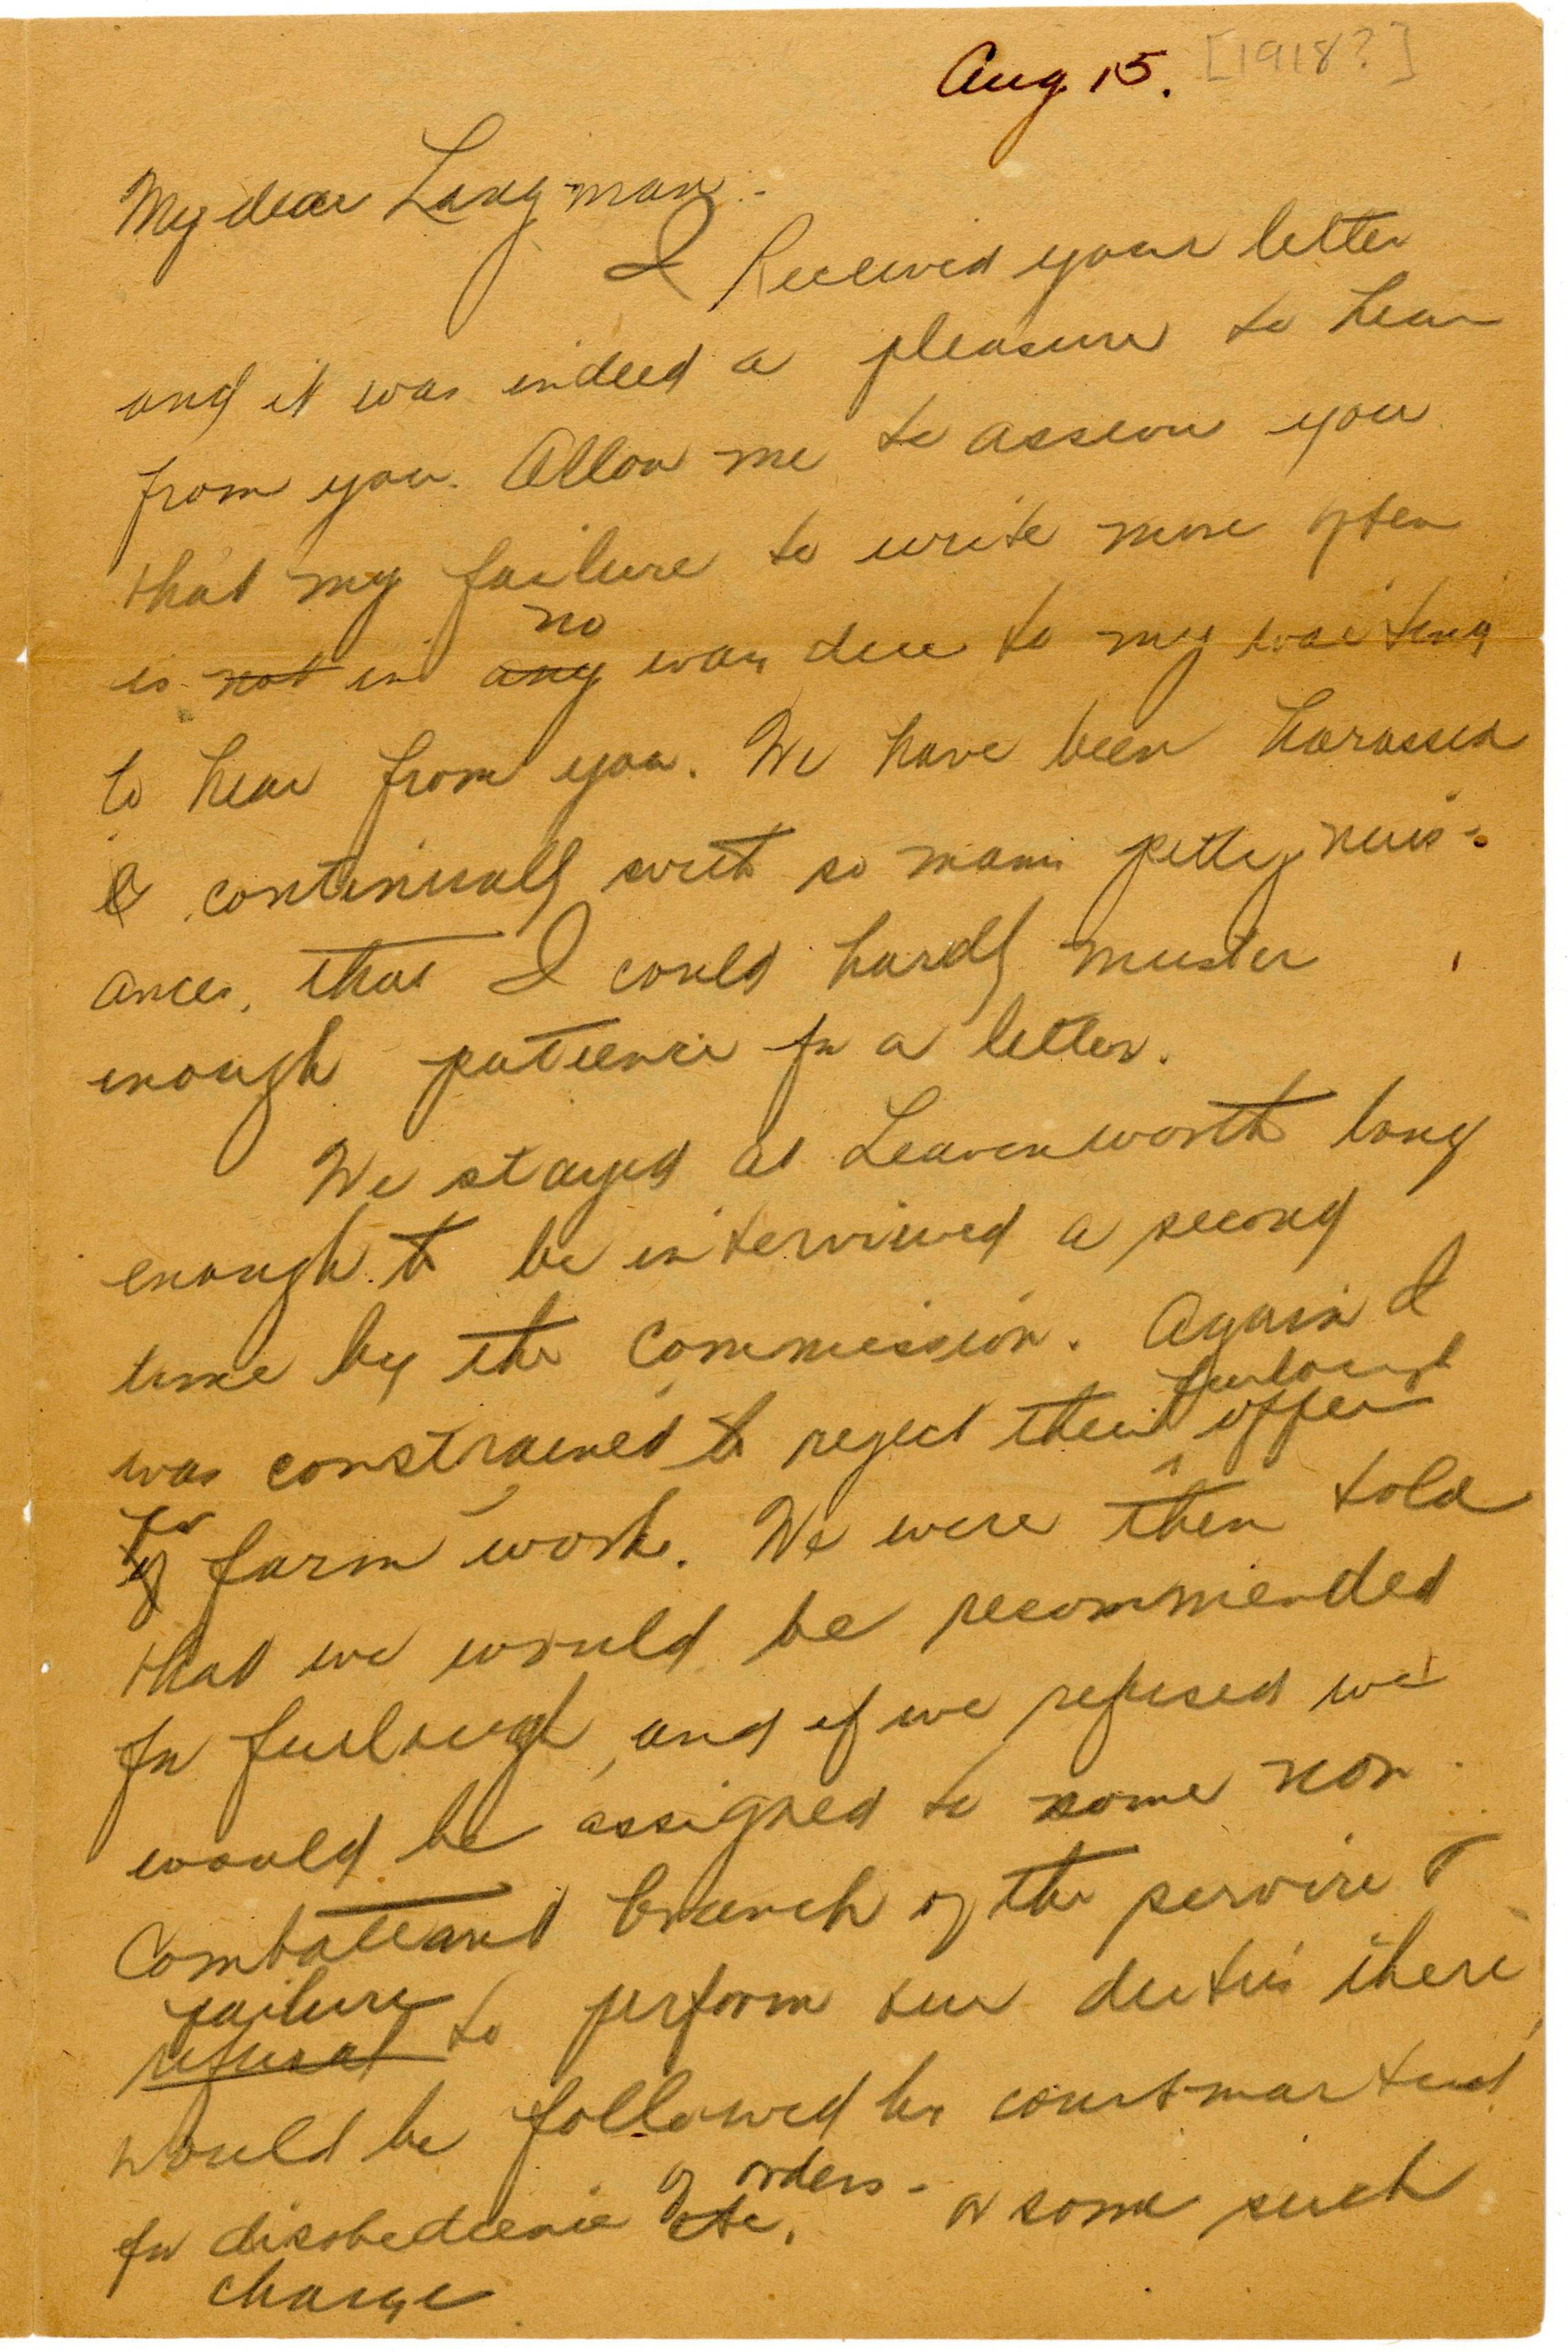 Aug 15. [1918?]
My dear Langman:-
I Received your letter
and it was indeed a pleasure to hear
from you. Allow me to assure you
that my failure to write more often
no
is not in any way due to my waiting
to hear from you. We have been harassed
& continually with so many petty nuis-
ances, that I could hardly muster
enough patience for a letter.
We stayed at Leavenworth long
enough to be interviewed a second
time by the Commission. Again I
furlough
was constrained to reject their ^ offer
for
of farm work. We were then told
that we would be recommended
for furlough, and if we refused we
would be assigned to some non-
Combattant branch of the service &
failure
refusal to perform our duties there,
would be followed by court-martial
of orders-
for disobedience etc. or some such
charge